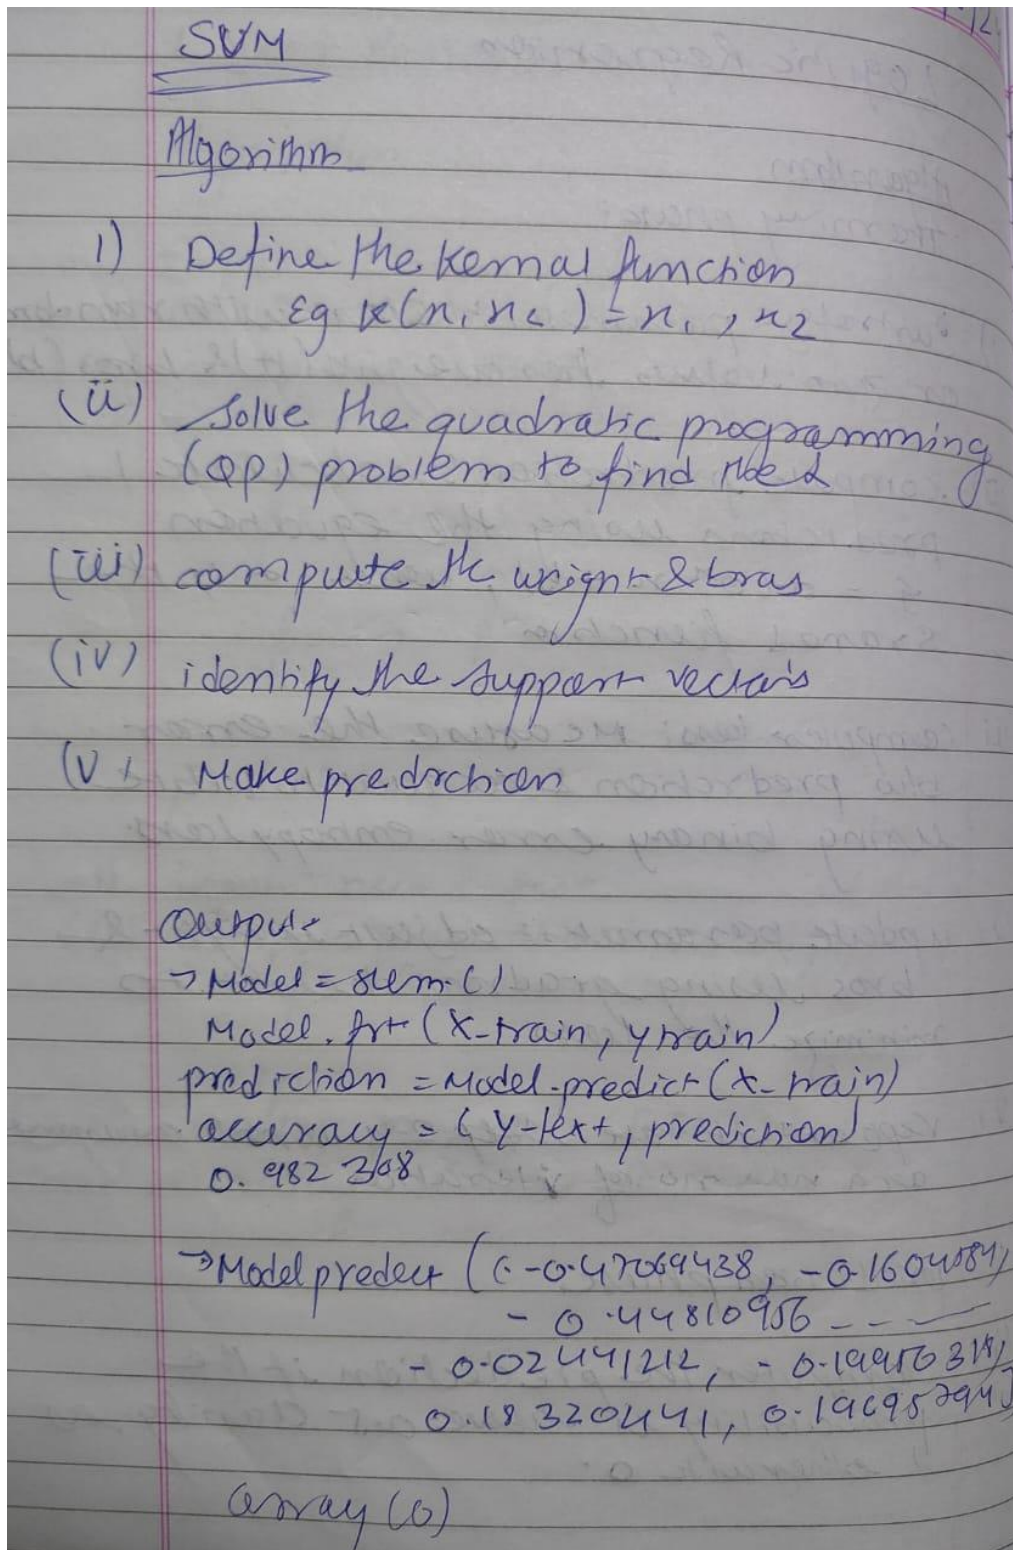 SVM
Algorithm
1) Define the kernal function
Eg k(x, x₂) = x₁, x2
(ii) Solve the quadratic programming
(QP) problem to find the α
(iii) compute the weight & bias
(iv) identify the support vectors
(v) Make prediction
Output:-
→ Model = svm.()
Model.fit (X-train, ytrain)
prediction = Model.predict (X-train)
accuracy = (y-text, prediction)
0.982
→ Model predect ((-0.47069438, -0.1604584,
-0.44810956 - - -
-0.02441212, -0.19956318,
0.18320441, 0.19695794)
array (0)